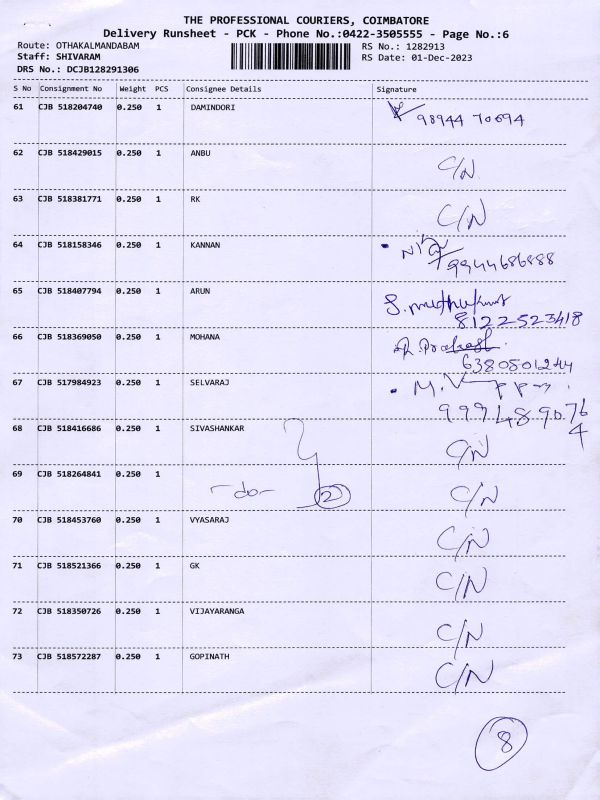 THE PROFESSIONAL COURIERS, COIMBATORE
Delivery Runsheet - PCK - Phone No.:0422-3505555 - Page No.:6
Route: OTHAKALMANDABAM RS No.: 1282913
Staff: SHIVARAM RS Date: 01-Dec-2023
DRS No.: DCJB128291306
S No Consignment No Weight PCS Consignee Details Signature
61 CJB 518204740 0.250 1 DAMINDORI
98944 70694
62 CJB 518429015 0.250 1 ANBU C/N
63 CJB 518381771 0.250 1 RK C/N
64 CJB 518158346 0.250 1 KANNAN
9944686888
65 CJB 518407794 0.250 1 ARUN
8122523418
66 CJB 518369050 0.250 1 MOHANA
6380501244
67 CJB 517984923 0.250 1 SELVARAJ
9994890764
68 CJB 518416686 0.250 1 SIVASHANKAR C/N
69 CJB 518264841 0.250 1 -do- 2 C/N
70 CJB 518453760 0.250 1 VYASARAJ C/N
71 CJB 518521366 0.250 1 GK C/N
72 CJB 518350726 0.250 1 VIJAYARANGA C/N
73 CJB 518572287 0.250 1 GOPINATH C/N
8